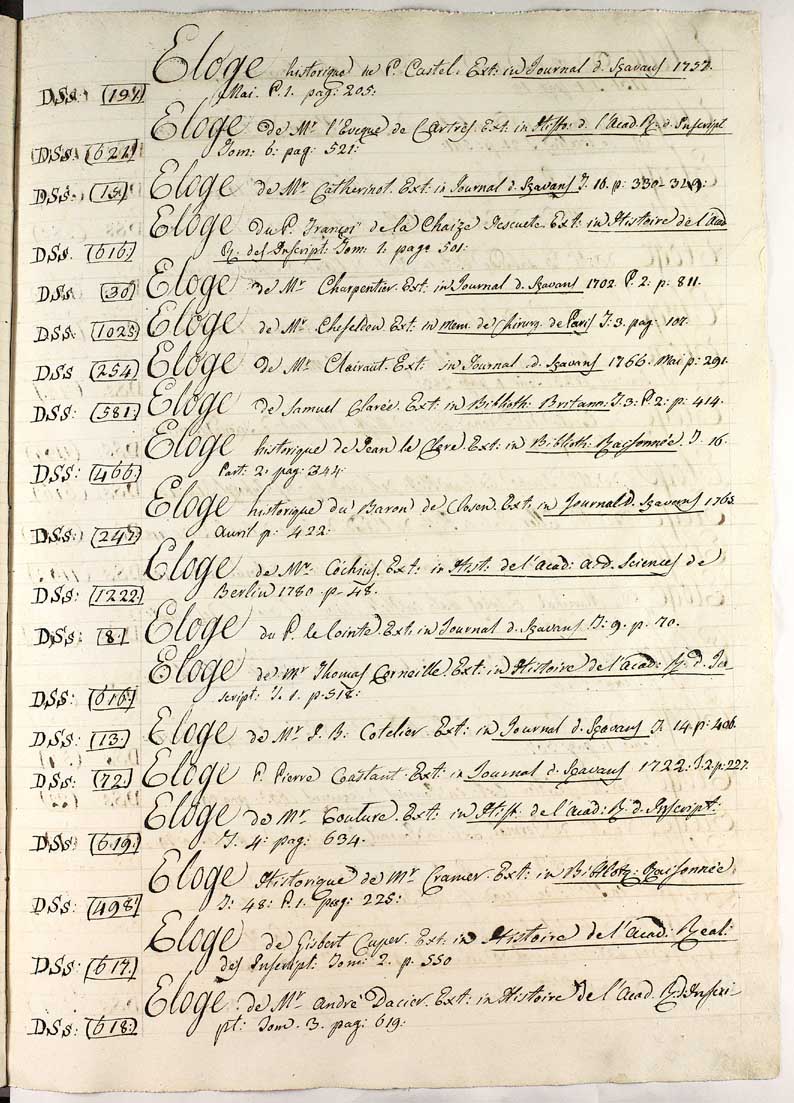 Eloge historique du P. Castel. Ext: in Journal d. Sçavans 1757.
DSs: (197) Mai. P. 1. pag: 205:
Eloge de Mr. l'Eveque de Cartres. Ext: in Histo: d. l'Acad. R. d. Inscript
DSs: (621) Tom: 6: pag: 521:
DSs: (15) Eloge de Mr. Catherinot. Ext: in Journal d. Sçavans T. 16. p: 330-349:
Eloge du P. François de la Chaize Jesuete. Ext: in Histoire de l'Acad
DSs. (616) R. des Inscript: Tom: 1. page 501:
DSs (30) Eloge de Mr. Charpentier. Ext: in Journal d. Sçavans 1702. P. 2: p: 811.
DSs (1025) Eloge de Mr. Cheselden Ext: in Mem. de Chirurg. de Paris T: 3. pag: 107.
DSs (254) Eloge de Mr. Clairaut. Ext: in Journal d. Sçavans 1766. Mai p: 291.
DSs: (581) Eloge de Samuel Ext: in Biblioth: Britann: T. 3. P. 2: p: 414.
Eloge historique de Jean le Clere. Ext: in Biblioth: Raisonnée. T. 16.
DSs: (466) Part: 2: pag: 344:
Eloge historique du Baron de Closen. Ext: in Journal d. Sçavans 1765
DSs: (247) Avril p: 422:
Eloge de Mr. Cochius. Ext: in Hist: de l'Acad: d. Sciences de
DSs: (1222) Berlin 1780 p. 48.
DSs: (8) Eloge du P. le Cointe. Ext: in Journal d. Sçavans T: 9. p. 70.
Eloge de Mr Thomas Corneille. Ext: in Histoire de l'Acad: R. d. In
DSs: (616) script: T. 1. p. 518:
DSs: (13.) Eloge de Mr. J. B: Cotelier. Ext: in Journal d. Sçavans T. 14. p: 406.
DSs: (72.) Eloge P. Pierre Coastant. Ext: in Journal d. Sçavans 1722: T. 2. p: 227.
Eloge de Mr. Couture. Ext: in Hist. de l'Acad: R. d. Inscript.
DSs: (619.) T. 4: pag: 634.
Eloge Historique de Mr. Cramer. Ext: in Biblioty: Raisonnée
DSs: (498) T: 48: P. 1. pag: 225:
Eloge de Gisbert Cuper. Ext. in Histoire de l'Acad: Real:
DSs: (617.) des Inscript: Tom: 2. p. 550
Eloge de Mr. André Dacier. Ext: in Histoire de l'Acad. R. d. Inscri-
DSs: (618:) pt: Tom. 3. pag: 619: